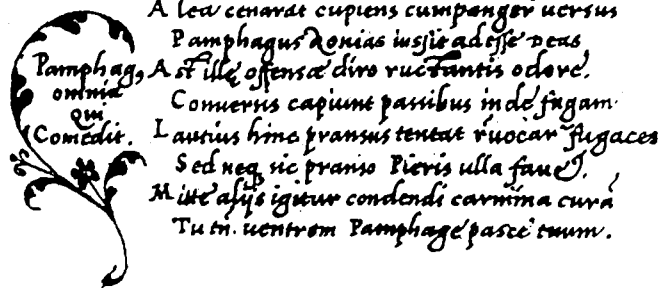 Pamphag9
omnia
qui
Comedit.
Alea cenarat cupiens cum pangere versus
Pamphagus Aonias iussit adesse Deas,
Ast illę offensæ diro ructantis odore,
Conversis capiunt passibus inde fugam.
Lautius hinc pransus tentat revocare fugaces
Sed neq sic pranso Pieris ulla favet.
Mitte alijs igitur condendi carmina curā
Tu tn. ventrem Pamphage pasce tuum.